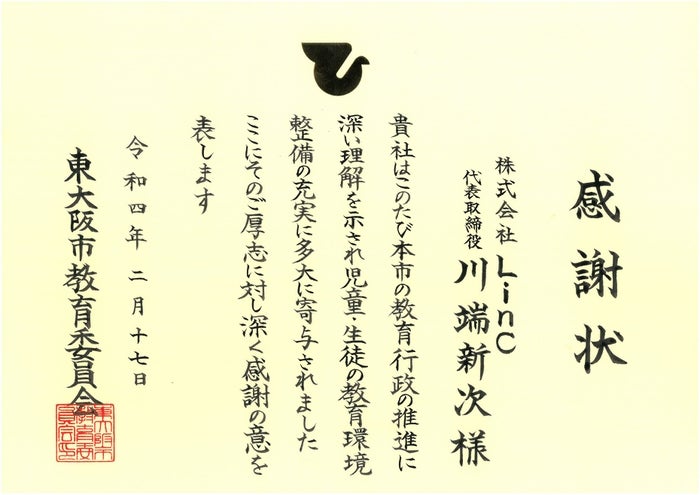 感謝状
株式会社 LinC
代表取締役 川端新次様
貴社はこのたび本市の教育行政の推進に
深い理解を示され児童・生徒の教育環境
整備の充実に多大に寄与されました
ここにそのご厚志に対し深く感謝の意を
表します
令和四年 二月十七日
東大阪市教育委員会